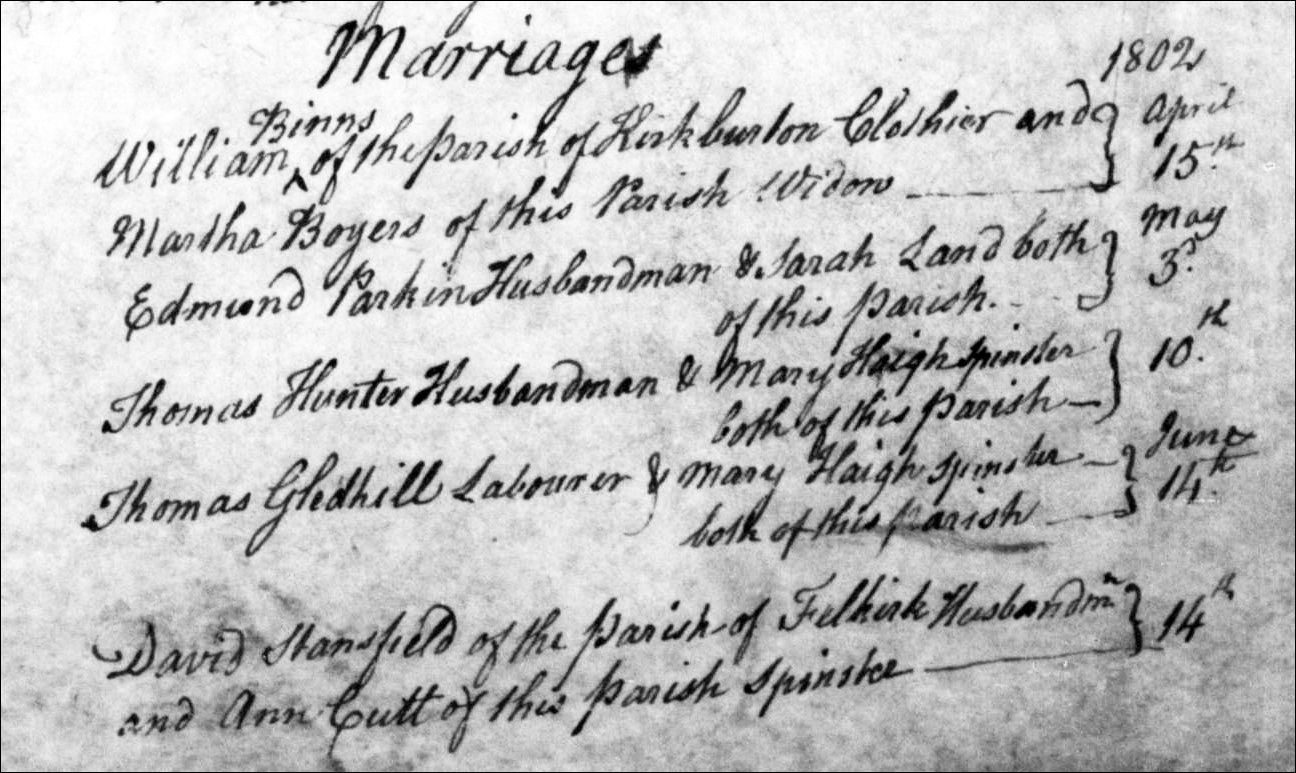 Marriages
1802
William Binns of the Parish of Kirkburton Clothier and } April
Martha Boyers of this Parish Widow } 15.th
Edmund Parkin Husbandman & Sarah Land both } May
of this Parish. } 3.d
Thomas Hunter Husbandman & Mary Haigh Spinster } 10.th
both of this Parish
Thomas Gledhill Labourer & Mary Haigh Spinster } June
both of this Parish } 14.th
David Stansfield of the Parish of Felkirk Husbandmn } 14th
and Ann Cutt of this Parish Spinster